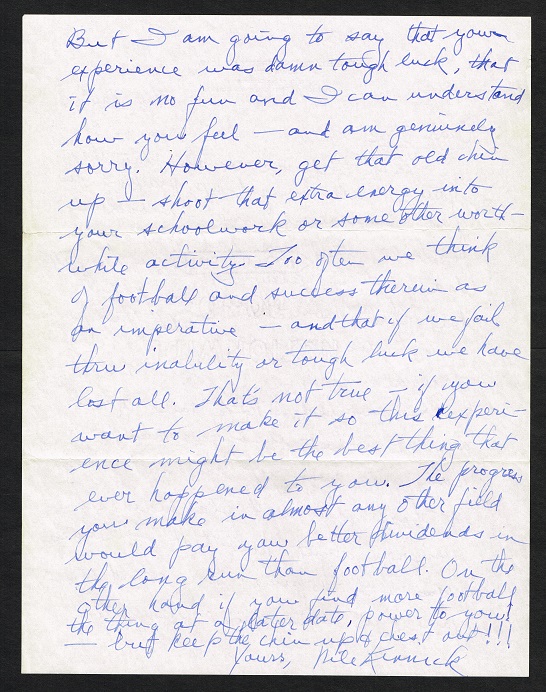 But I am going to say that your
experience was damn tough luck, that
it is no fun and I can understand
how you feel — and am genuinely
sorry. However, get that old chin
up — shoot that extra energy into
your schoolwork or some other worth-
while activity. Too often we think
of football and success therein as
an imperative — and that if we fail
thru inability or tough luck we have
lost all. That's not true — if you
want to make it so this experi-
ence might be the best thing that
ever happened to you. The progress
you make in almost any other field
would pay you better dividends in
the long run than football. On the
other hand if you find more football
the thing at a later date, power to you!
— but keep the chin up & chest out!!!
Yours, Nile Kinnick